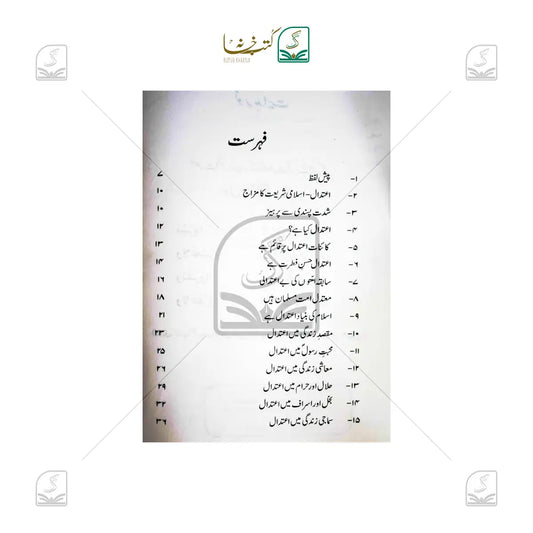 کتب خانہ
فہرست
۱- پیش لفظ ۷
۲- اعتدال - اسلامی شریعت کا مزاج ۱۰
۳- شدت پسندی سے پرہیز ۱۰
۴- اعتدال کیا ہے؟ ۱۲
۵- کائنات اعتدال پر قائم ہے ۱۳
۶- اعتدال حسنِ فطرت ہے ۱۴
۷- سابقہ امتوں کی بے اعتدالی ۱۶
۸- معتدل امت مسلمان ہیں ۱۸
۹- اسلام کی بنیاد اعتدال ہے ۲۱
۱۰- مقصدِ زندگی میں اعتدال ۲۳
۱۱- محبتِ رسولؐ میں اعتدال ۲۵
۱۲- معاشی زندگی میں اعتدال ۲۶
۱۳- حلال اور حرام میں اعتدال ۲۹
۱۴- بخل اور اسراف میں اعتدال ۳۲
۱۵- سماجی زندگی میں اعتدال ۳۶